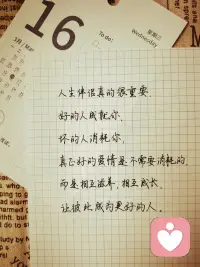 16
To do:
星期三
Wednesday
3月 | Mar
人生伴侣真的很重要.
好的人成就你.
坏的人消耗你.
真正好的爱情是不需要消耗的.
而是相互滋养,相互成长.
让彼此成为更好的人.